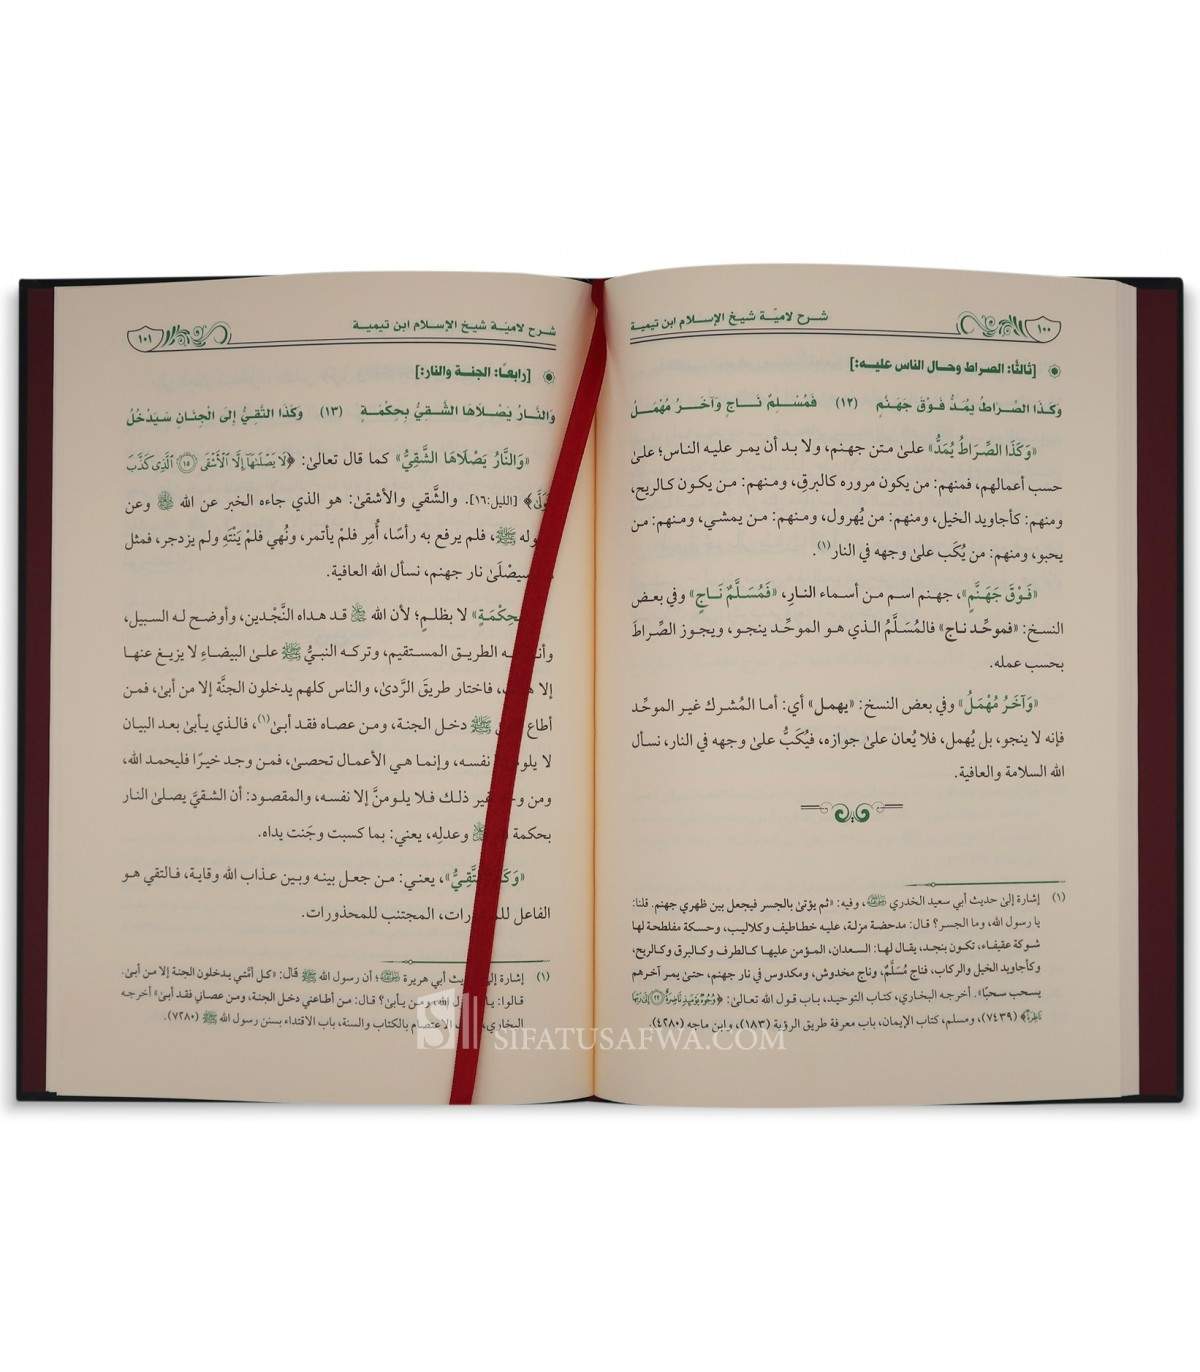 شرح لاميّة شيخ الإسلام ابن تيمية
١٠٠
[ثالثًا: الصراط وحال الناس عليه:]
وَكَذَا الصِّرَاطُ يُمَدُّ فَوْقَ جَهَنَّمٍ (١٢) فَمُسَلَّمٌ نَاجٍ وَآخَرُ مُهْمَلُ
«وَكَذَا الصِّرَاطُ يُمَدُّ» علىٰ متن جهنم، ولا بد أن يمر عليه الناس؛ علىٰ
حسب أعمالهم، فمنهم: من يكون مروره كالبرقِ، ومنهم: من يكون كالريح،
ومنهم: كأجاويد الخيل، ومنهم: من يُهرول، ومنهم: من يمشي، ومنهم: من
يحبو، ومنهم: من يُكَب علىٰ وجهه في النار(١).
«فَوْقَ جَهَنَّمٍ»، جهنم اسم من أسماء النارِ، «فَمُسَلَّمٌ نَاجٍ» وفي بعض
النسخ: «فموحِّد ناج» فالمُسَلَّمُ الذي هو الموحِّد ينجو، ويجوز الصِّراطَ
بحسب عمله.
«وَآخَرُ مُهْمَلُ» وفي بعض النسخ: «يهمل» أي: أما المُشرك غير الموحِّد
فإنه لا ينجو، بل يُهمل، فلا يُعان علىٰ جوازه، فيُكَبُّ علىٰ وجهه في النار، نسأل
الله السلامة والعافية.
(١) إشارة إلىٰ حديث أبي سعيد الخدري ﷺ، وفيه: «ثم يؤتىٰ بالجسر فيجعل بين ظهري جهنم. قلنا:
يا رسول الله، وما الجسر؟ قال: مدحضة مزلة، عليه خطاطيف وكلاليب، وحسكة مفلطحة لها
شوكة عقيفاء، تكون بنجد، يقال لها: السعدان، المؤمن عليها كالطرف وكالبرق وكالريح،
وكأجاويد الخيل والركاب، فناج مُسَلَّمٌ، وناج مخدوش، ومكدوس في نار جهنم، حتىٰ يمر آخرهم
يسحب سحبًا». أخرجه البخاري، كتاب التوحيد، باب قول الله تعالىٰ: ﴿وُجُوهٌ يَوْمَئِذٍ نَاضِرَةٌ ٢٢ إِلَىٰ رَبِّهَا
نَاظِرَةٌ﴾ (٧٤٣٩)، ومسلم، كتاب الإيمان، باب معرفة طريق الرؤية (١٨٣)، وابن ماجه (٤٢٨٠).
شرح لاميّة شيخ الإسلام ابن تيمية
١٠١
[رابعًا: الجنة والنار:]
وَالنَّارُ يَصْلَاهَا الشَّقِيُّ بِحِكْمَةٍ (١٣) وَكَذَا التَّقِيُّ إِلَى الْجِنَانِ سَيَدْخُلُ
«وَالنَّارُ يَصْلَاهَا الشَّقِيُّ» كما قال تعالىٰ: ﴿لَا يَصْلَاهَا إِلَّا الْأَشْقَى ١٥ الَّذِي كَذَّبَ
[الليل:١٦]. والشَّقي والأشقىٰ: هو الذي جاءه الخبر عن الله ﷻ وعن
ﷺ، فلم يرفع به رأسًا، أُمِر فلمْ يأتمر، ونُهي فلمْ يَنْتَهِ ولم يزدجر، فمثل
سيصْلَىٰ نار جهنم، نسأل الله العافية.
لا بظلمٍ؛ لأن الله ﷻ قد هداه النَّجْدين، وأوضح له السبيل،
الطريق المستقيم، وتركه النبيُّ ﷺ علىٰ البيضاءِ لا يزيغ عنها
إلا فاختار طريقَ الرَّدىٰ، والناس كلهم يدخلون الجنَّة إلا من أبىٰ، فمن
أطاع ﷺ دخل الجنة، ومن عصاه فقد أبىٰ(١)، فالذي يأبىٰ بعد البيان
لا نفسه، وإنما هي الأعمال تحصىٰ، فمن وجد خيرًا فليحمد الله،
ومن غير ذلك فلا يلومنَّ إلا نفسه، والمقصود: أن الشقيَّ يصلىٰ النار
بحكمة وعدلِه، يعني: بما كسبت وجَنت يداه.
يعني: من جعل بينه وبين عذاب الله وقاية، فالتقي هو
الفاعل المجتنب للمحذورات.
(١) إشارة أبي هريرة ﷺ؛ أن رسول الله ﷺ قال: «كل أمَّتي يدخلون الجنة إلا من أبىٰ.
قالوا: الله، ومن يأبىٰ؟ قال: من أطاعني دخل الجنة، ومن عصاني فقد أبىٰ» أخرجه
البخاري، الاعتصام بالكتاب والسنة، باب الاقتداء بسنن رسول الله ﷺ (٧٢٨٠).
SIFATUSAFWA.COM